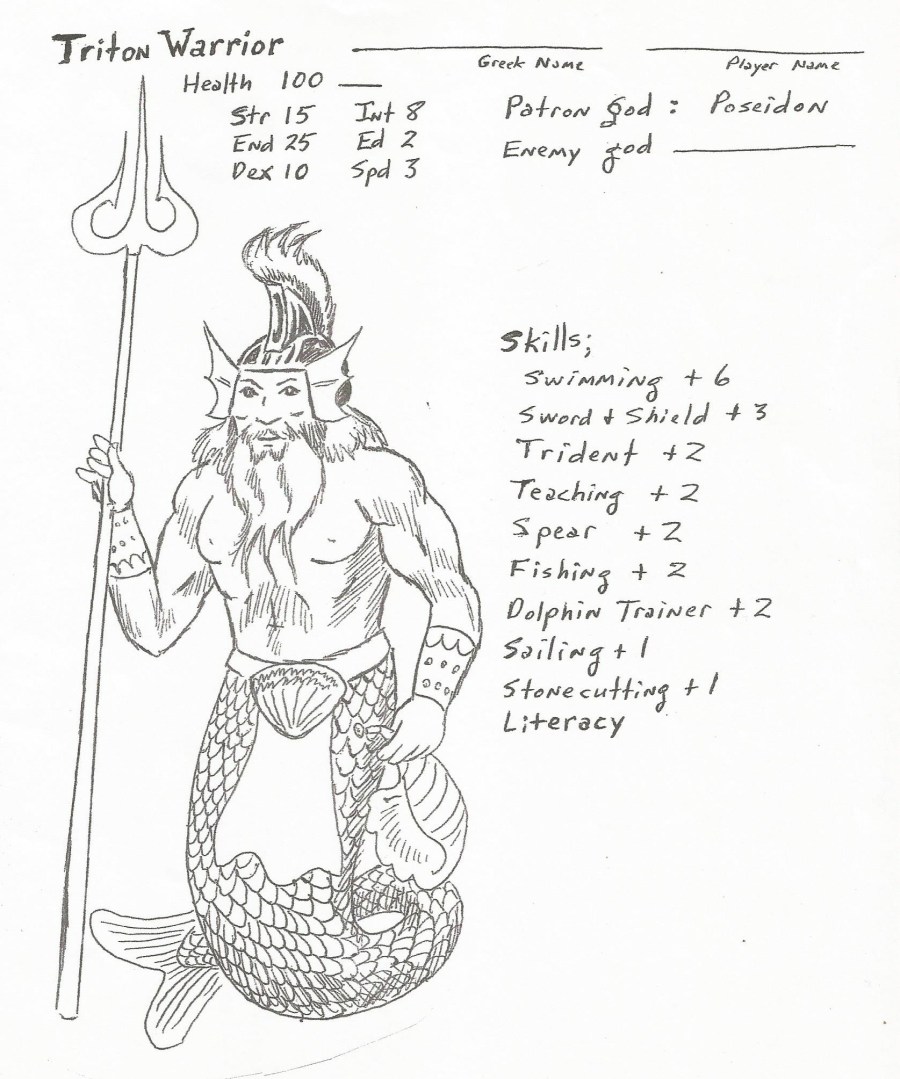 Triton Warrior
Greek Name
Player Name
Health 100
Str 15 Int 8
End 25 Ed 2
Dex 10 Spd 3
Patron god : Poseidon
Enemy god
Skills;
Swimming + 6
Sword + Shield + 3
Trident + 2
Teaching + 2
Spear + 2
Fishing + 2
Dolphin Trainer + 2
Sailing + 1
Stonecutting + 1
Literacy